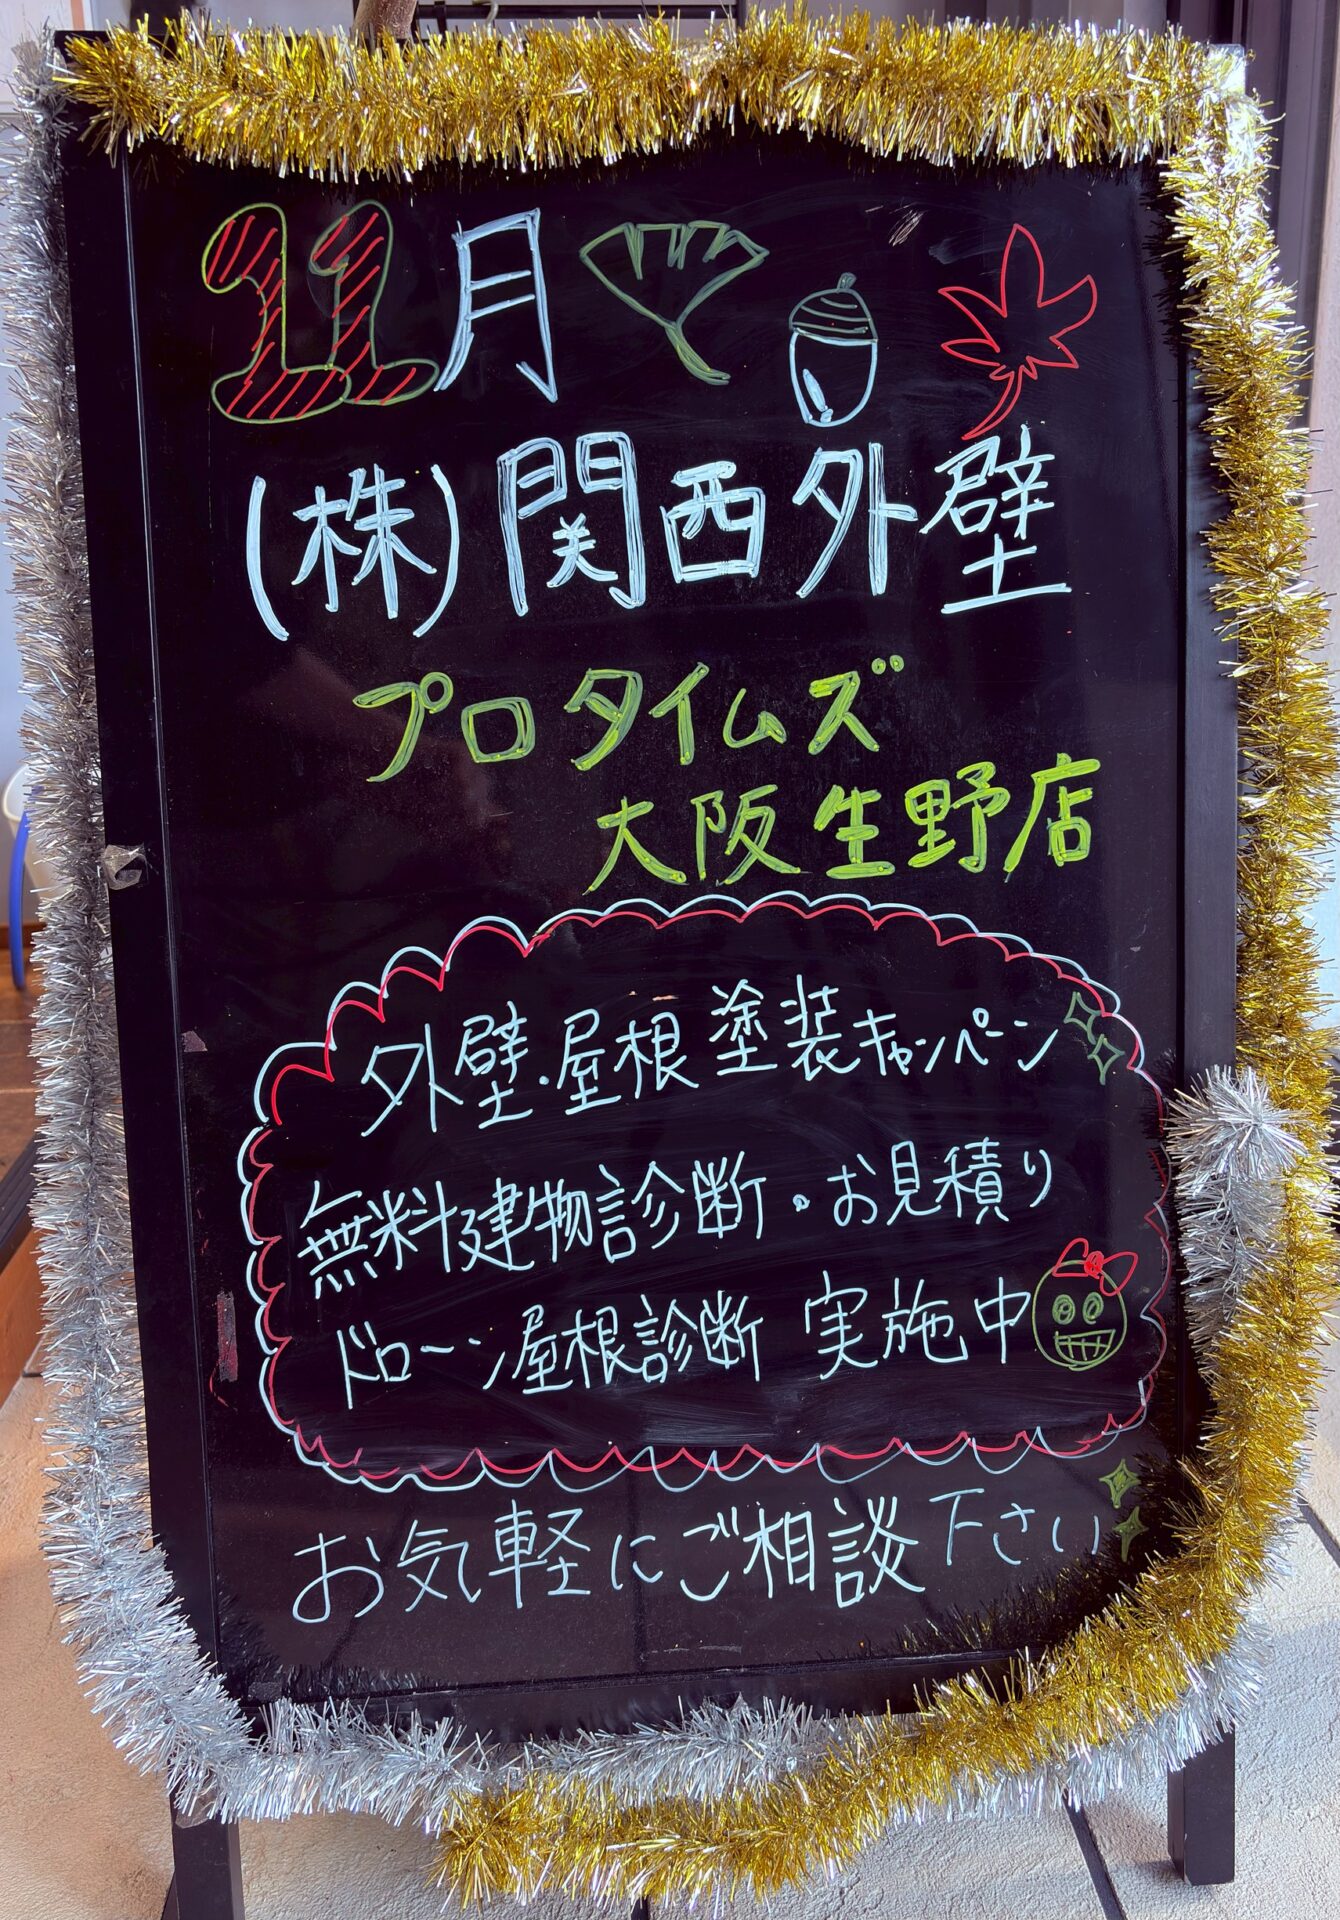 11月
(株)関西外壁
プロタイムズ
大阪生野店
外壁・屋根塗装キャンペーン
無料建物診断・お見積り
ドローン屋根診断 実施中
お気軽にご相談下さい